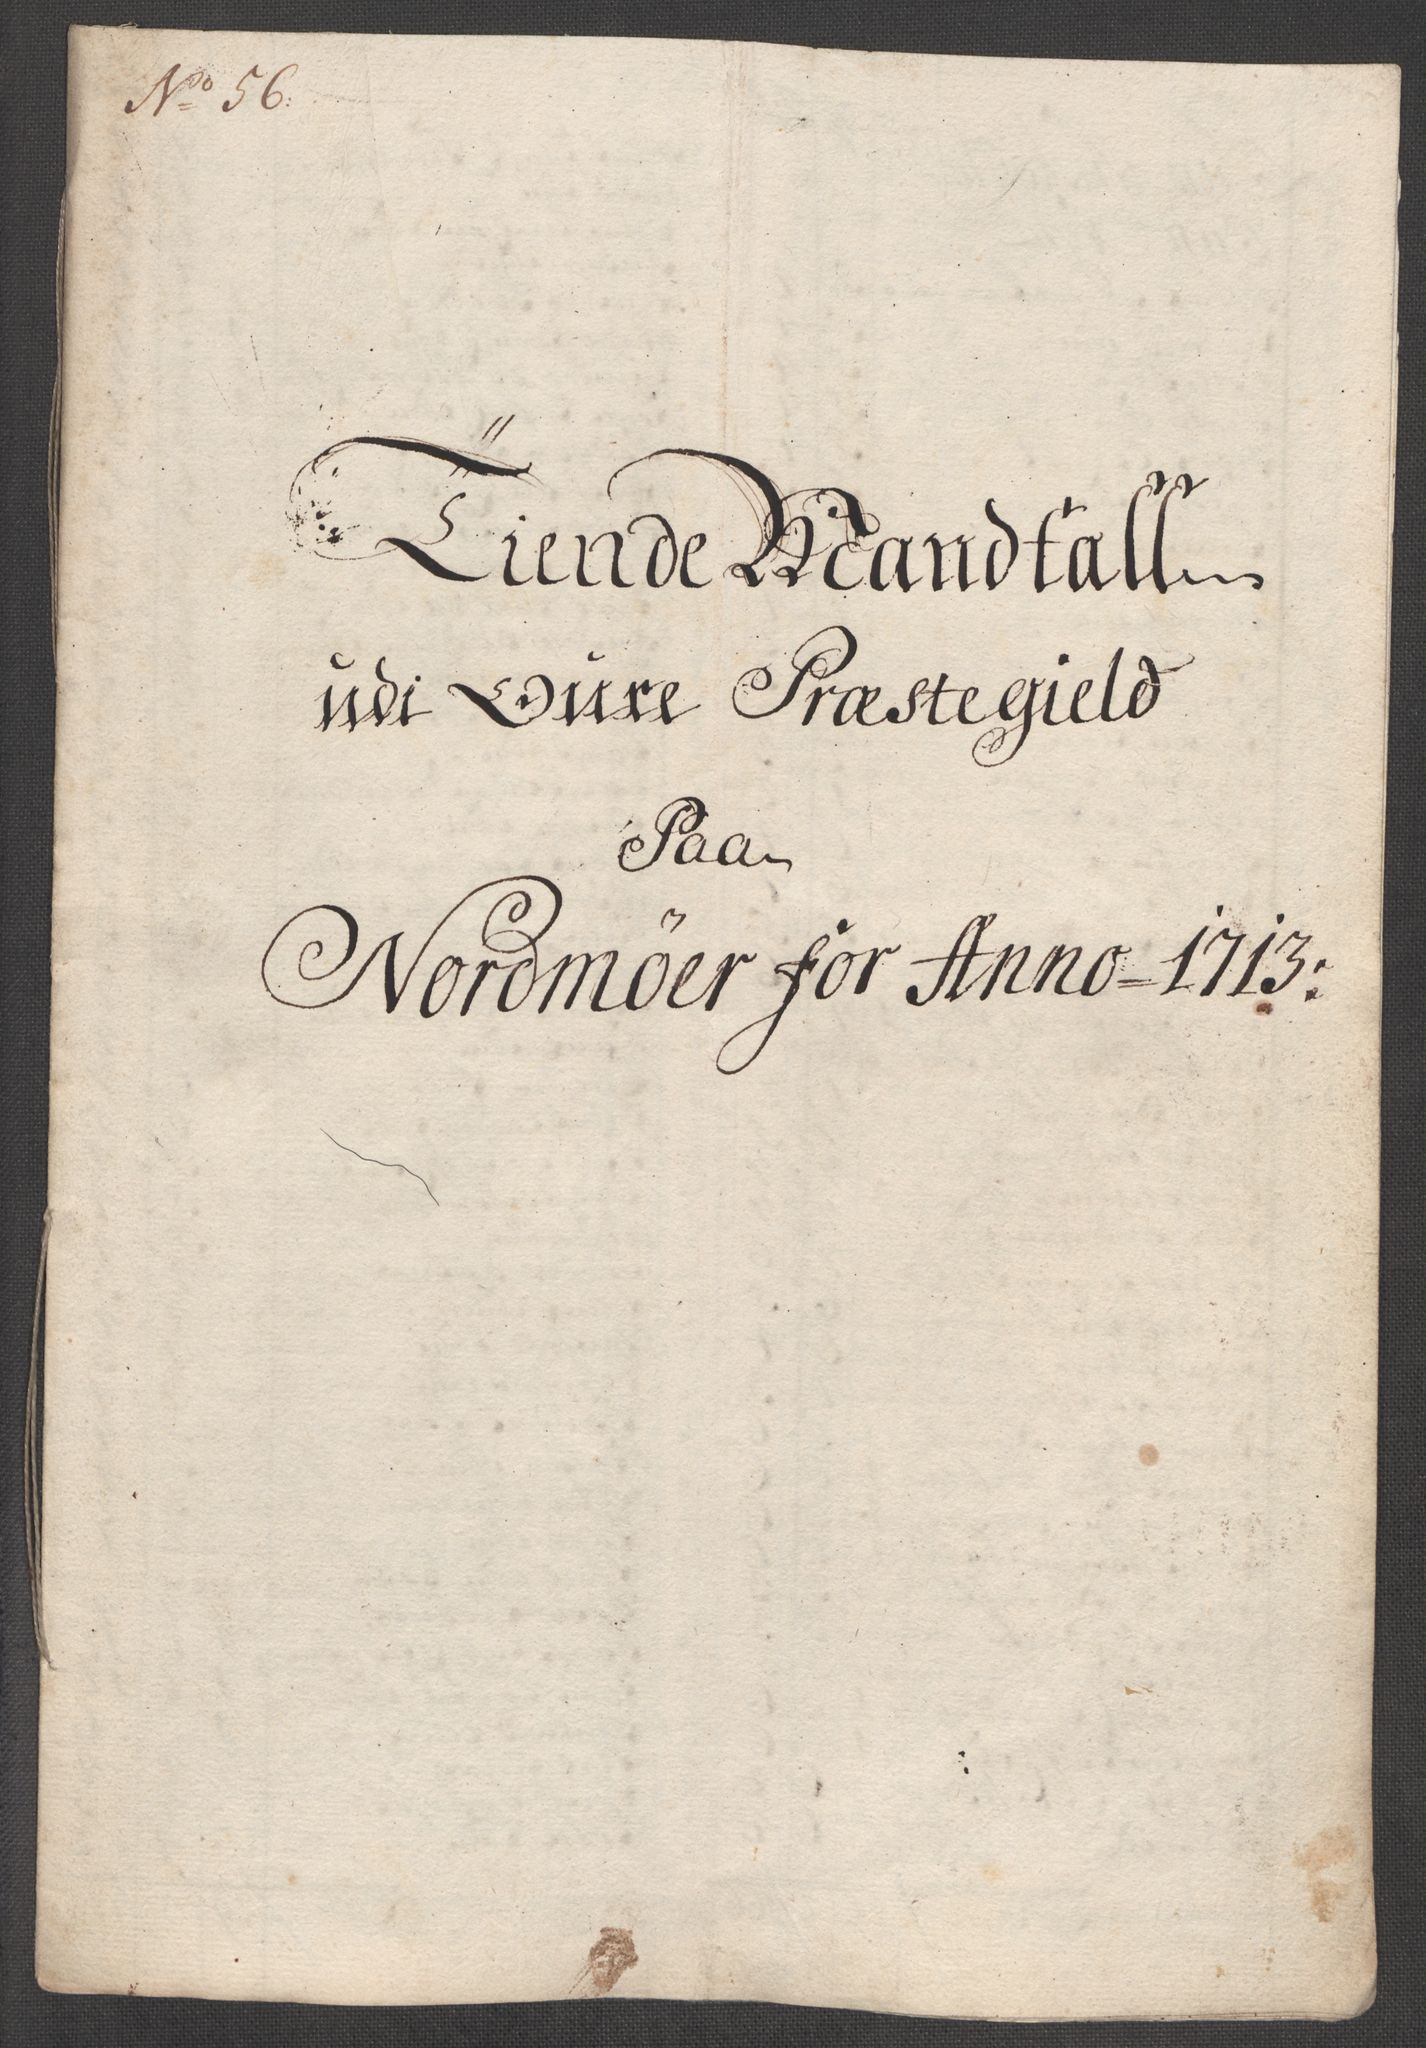 No 56.
Tiende Mandtall
udi Oure Præstegield
Paa
Nordmöer for Anno 1713: